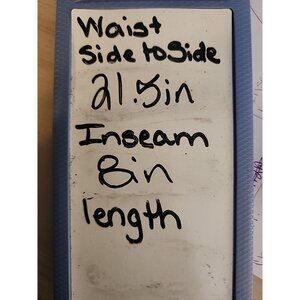 Waist
Side to Side
21.5in
Inseam
8in
length